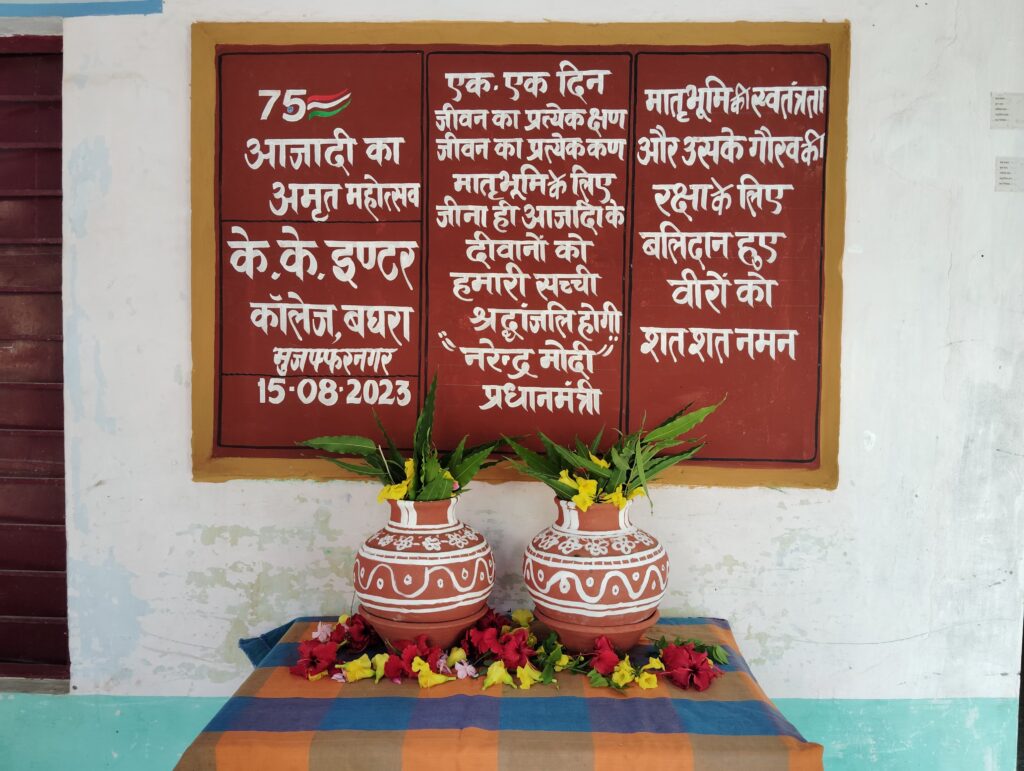 75
आजादी का
अमृत महोत्सव
के.के. इण्टर
कॉलेज, बघरा
मुजफ्फरनगर
15-08-2023
एक-एक दिन
जीवन का प्रत्येक क्षण
जीवन का प्रत्येक कण
मातृभूमि के लिए
जीना ही आजादी के
दीवानों को
हमारी सच्ची
श्रद्धांजलि होगी
"नरेन्द्र मोदी"
प्रधानमंत्री
मातृभूमि की स्वतंत्रता
और उसके गौरव की
रक्षा के लिए
बलिदान हुए
वीरों को
शत शत नमन